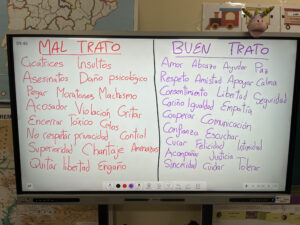 MAL TRATO
Cicatrices Insultos
Asesinatos Daño psicológico
Pegar Moratones Machismo
Acosador Violación Gritar
Encerrar Tóxico Celos
No respetar privacidad Control
Superioridad Chantaje Amenazas
Quitar libertad Engaño
BUEN TRATO
Amor Abrazo Ayudar Paz
Respeto Amistad Apoyar Calma
Consentimiento Libertad Seguridad
Cariño Igualdad Empatía
Cooperar Comunicación
Confianza Escuchar
Curar Felicidad Intimidad
Acompañar Justicia
Sinceridad Cuidar Tolerar